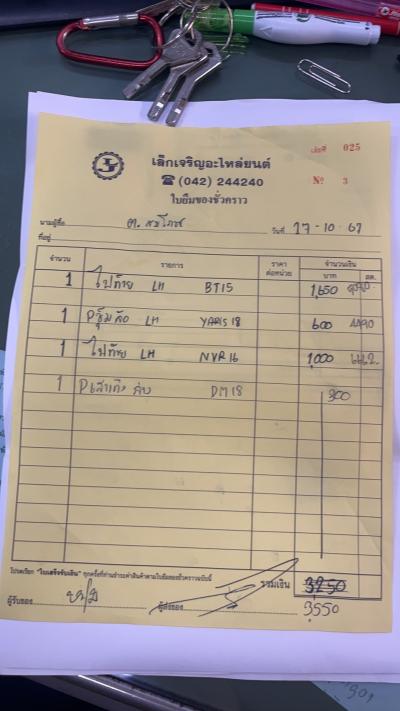 เล่มที่ 025
เล็กเจริญอะไหล่ยนต์
☎ (042) 244240
Nº 3
ใบยืมของชั่วคราว
นามผู้ซื้อ
วันที่ 17-10-67
ที่อยู่
จำนวน รายการ ราคาต่อหน่วย จำนวนเงิน
บาท สต.
1 ไฟท้าย LH BT15 1,650
1 LH YARIS 18 600
1 ไฟท้าย LH NVR16 1,000
1 DM18 300
โปรดเรียก "ใบเสร็จรับเงิน" ทุกครั้งที่ท่านชำระค่าสินค้าตามใบยืมของชั่วคราวฉบับนี้
รวมเงิน 3250
ผู้รับของ ผู้ส่งของ 3,550